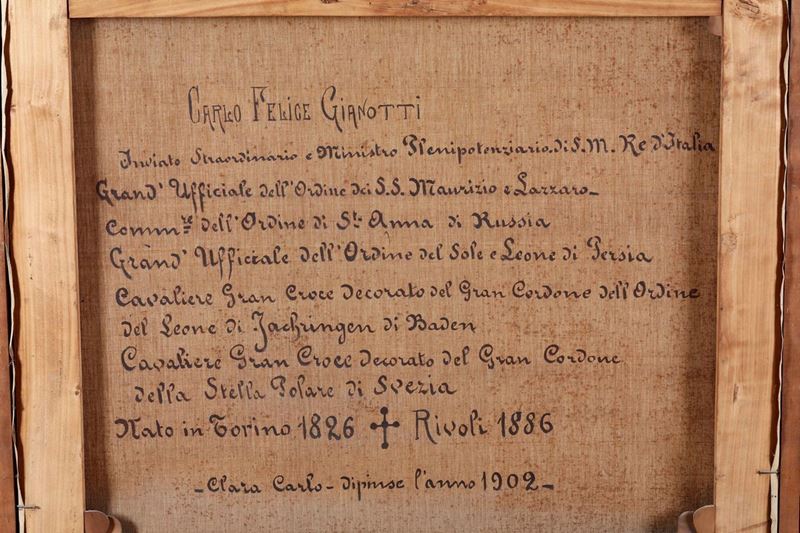 CARLO FELICE GIANOTTI
Inviato Straordinario e Ministro Plenipotenziario. di S. M. Re d'Italia
Grand' Ufficiale dell'Ordine dei S.S. Maurizio e Lazzaro_
Comm.re dell'Ordine di St. Anna di Russia
Grand' Ufficiale dell'Ordine del Sole e Leone di Persia
Cavaliere Gran Croce decorato del Gran Cordone dell'Ordine
del Leone di Zachringen di Baden
Cavaliere Gran Croce decorato del Gran Cordone
della Stella Polare di Svezia
Nato in Torino 1826 ✝ Rivoli 1886
_Clara Carlo_ dipinse l'anno 1902_